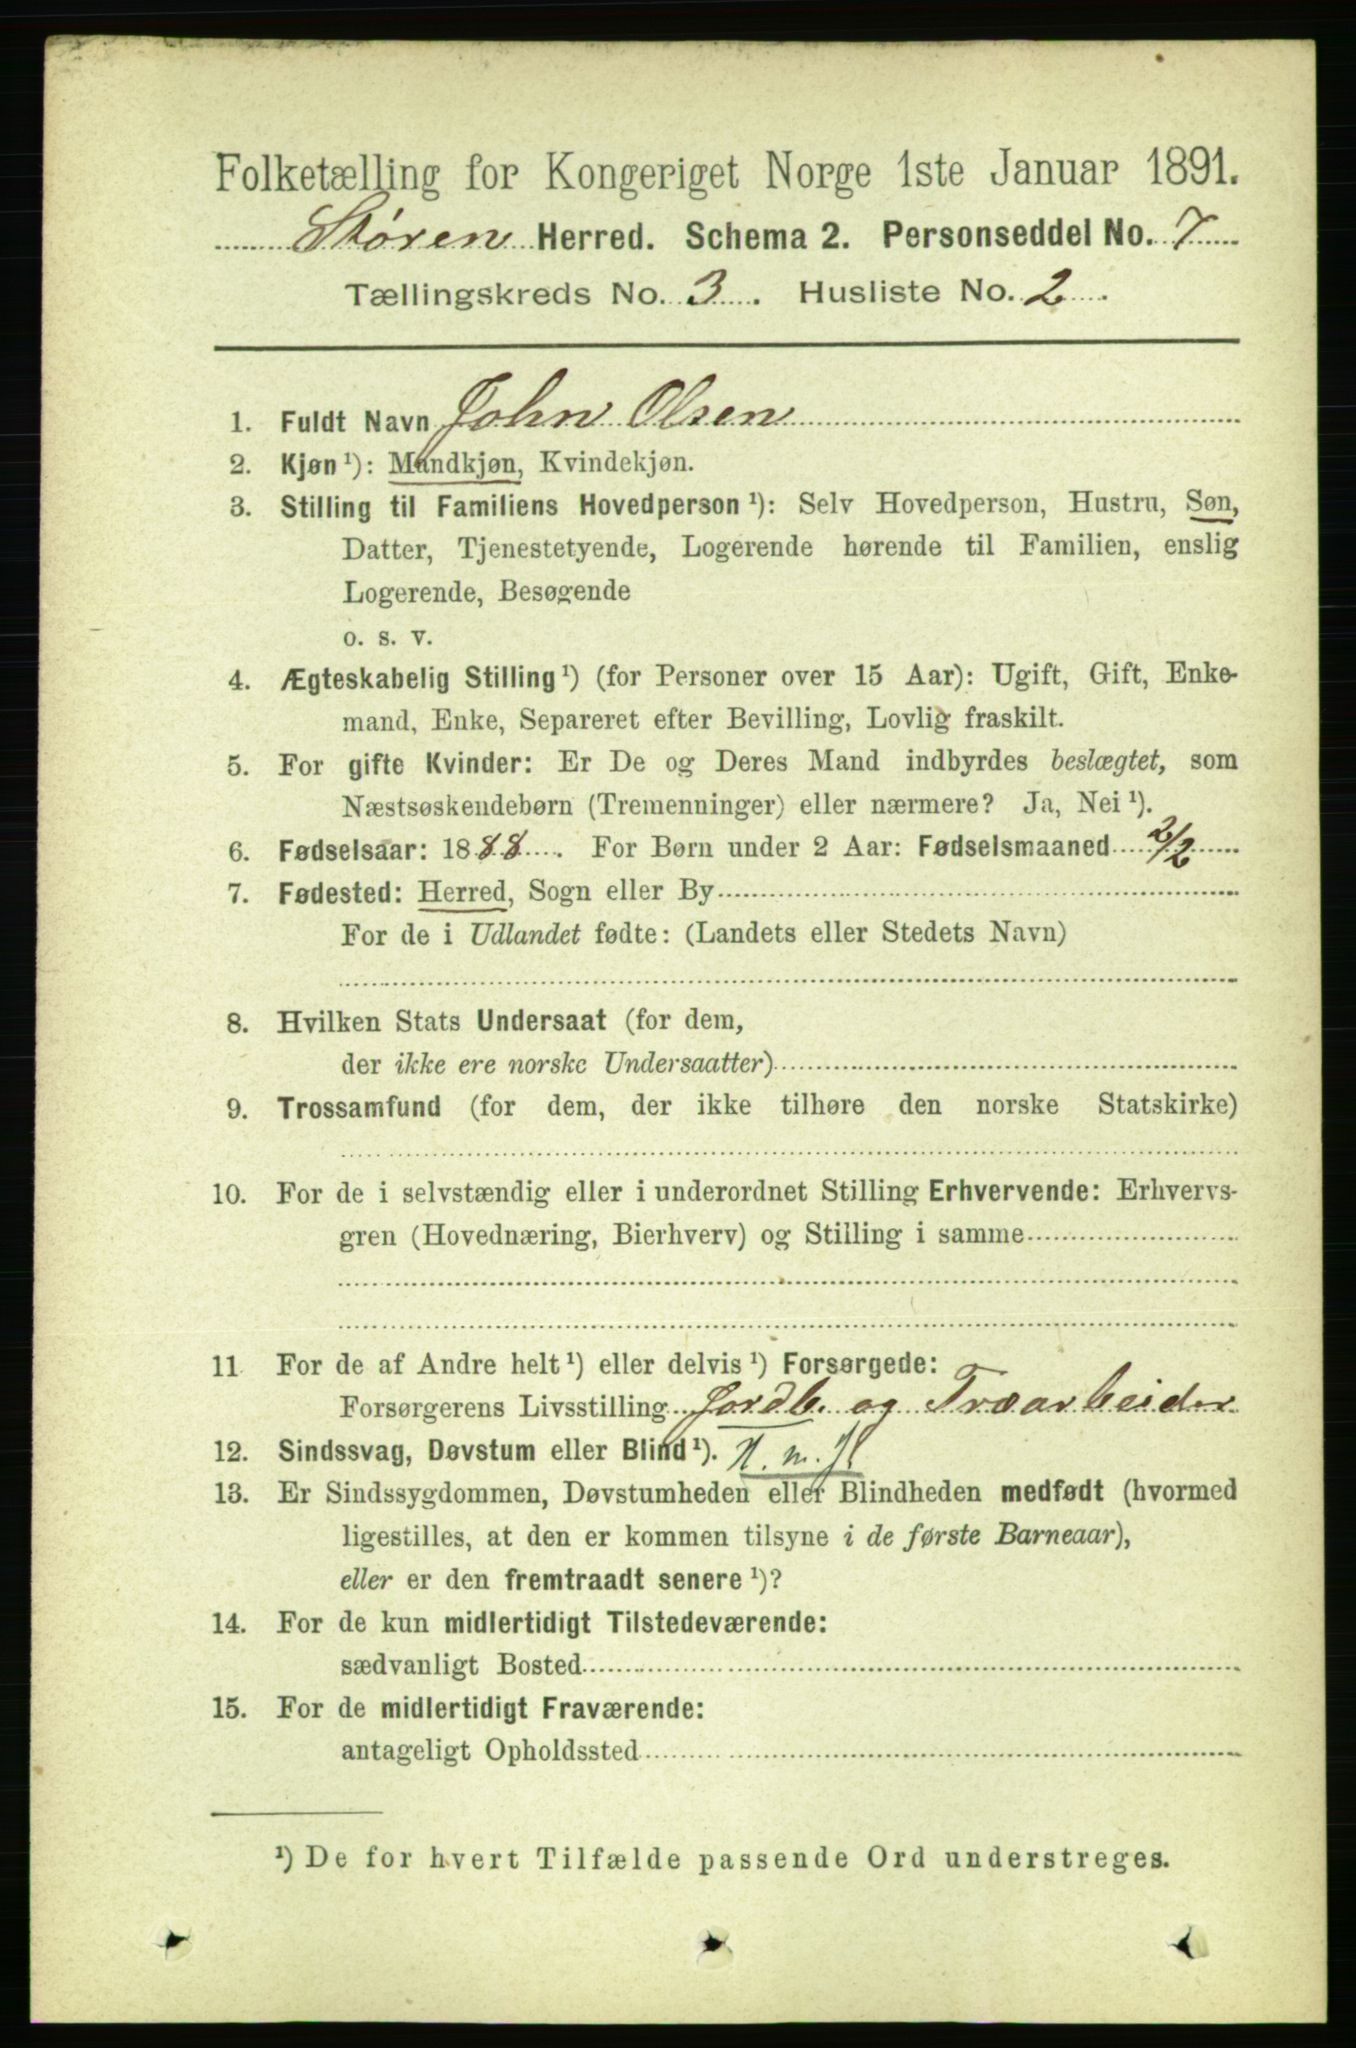 Folketælling for Kongeriget Norge 1ste Januar 1891.
Støren Herred. Schema 2. Personseddel No. 7
Tællingskreds No. 3. Husliste No. 2.
1. Fuldt Navn John Olsen
2. Kjøn ¹): Mandkjøn, Kvindekjøn.
3. Stilling til Familiens Hovedperson ¹): Selv Hovedperson, Hustru, Søn,
Datter, Tjenestetyende, Logerende hørende til Familien, enslig
Logerende, Besøgende
o. s. v.
4. Ægteskabelig Stilling ¹) (for Personer over 15 Aar): Ugift, Gift, Enke-
mand, Enke, Separeret efter Bevilling, Lovlig fraskilt.
5. For gifte Kvinder: Er De og Deres Mand indbyrdes beslægtet, som
Næstsøskendebørn (Tremenninger) eller nærmere? Ja, Nei ¹).
6. Fødselsaar: 1888. For Børn under 2 Aar: Fødselsmaaned 2/2
7. Fødested: Herred, Sogn eller By
For de i Udlandet fødte: (Landets eller Stedets Navn)
8. Hvilken Stats Undersaat (for dem,
der ikke ere norske Undersaatter)
9. Trossamfund (for dem, der ikke tilhøre den norske Statskirke)
10. For de i selvstændig eller i underordnet Stilling Erhvervende: Erhvervs-
gren (Hovednæring, Bierhverv) og Stilling i samme
11 For de af Andre helt ¹) eller delvis ¹) Forsørgede:
Forsørgerens Livsstilling Jordb. og Træarbeider
12. Sindssvag, Døvstum eller Blind ¹).
13. Er Sindssygdommen, Døvstumheden eller Blindheden medfødt (hvormed
ligestilles, at den er kommen tilsyne i de første Barneaar),
eller er den fremtraadt senere ¹)?
14. For de kun midlertidigt Tilstedeværende:
sædvanligt Bosted
15. For de midlertidigt Fraværende:
antageligt Opholdssted
¹) De for hvert Tilfælde passende Ord understreges.